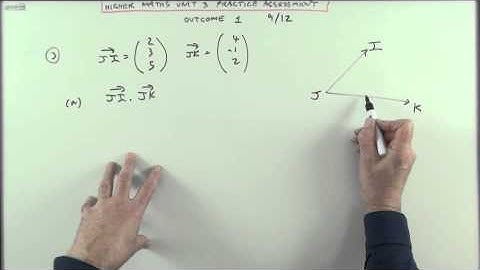 HIGHER MATHS UNIT 3 PRACTICE ASSESSMENT
OUTCOME 1 9/12
3) JI = (2 3 5) JK = (4 -1 2)
(a) JI . JK
I
J
K